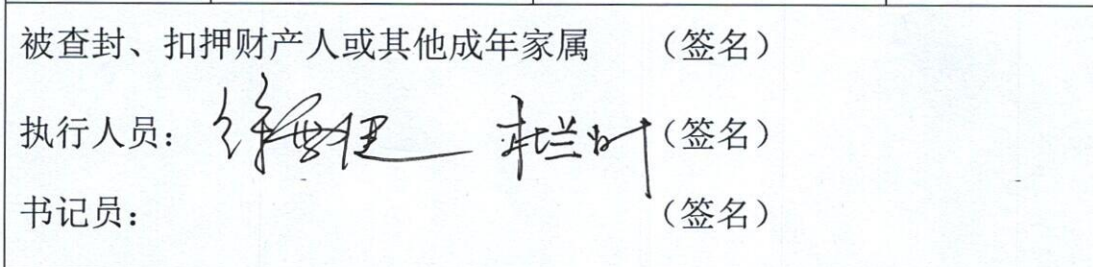 被查封、扣押财产人或其他成年家属 （签名）
执行人员： （签名）
书记员： （签名）